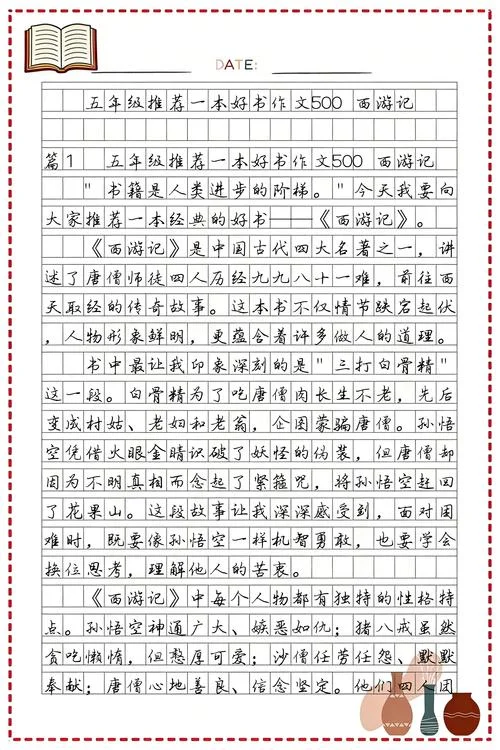 DATE:
五年级推荐一本好书作文500 西游记
篇1 五年级推荐一本好书作文500 西游记
"书籍是人类进步的阶梯。"今天我要向
大家推荐一本经典的好书——《西游记》。
《西游记》是中国古代四大名著之一，讲
述了唐僧师徒四人历经九九八十一难，前往西
天取经的传奇故事。这本书不仅情节跌宕起伏
，人物形象鲜明，更蕴含着许多做人的道理。
书中最让我印象深刻的是"三打白骨精"
这一段。白骨精为了吃唐僧肉长生不老，先后
变成村姑、老妇和老翁，企图蒙骗唐僧。孙悟
空凭借火眼金睛识破了妖怪的伪装，但唐僧却
因为不明真相而念起了紧箍咒，将孙悟空赶回
了花果山。这段故事让我深深感受到，面对困
难时，既要像孙悟空一样机智勇敢，也要学会
换位思考，理解他人的苦衷。
《西游记》中每个人物都有独特的性格特
点。孙悟空神通广大、嫉恶如仇；猪八戒虽然
贪吃懒惰，但憨厚可爱；沙僧任劳任怨、默默
奉献；唐僧心地善良、信念坚定。他们四人团